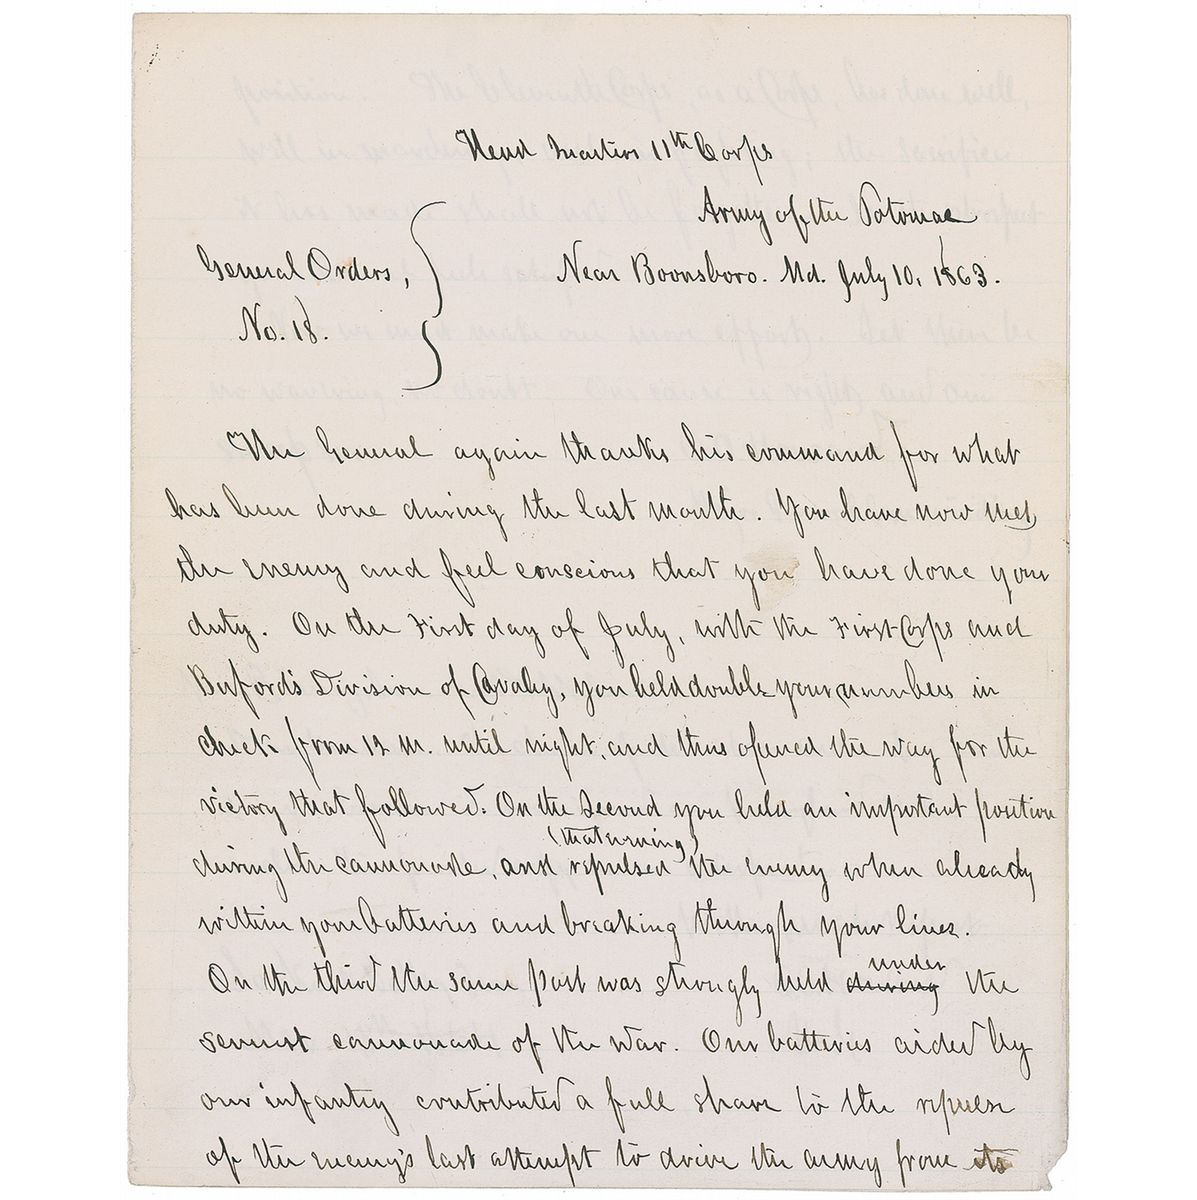 Head Quarters 11th Corps
Army of the Potomac
General Orders,
Near Boonsboro. Md. July 10, 1863.
No. 18.
The General again thanks his command for what
has been done during the last month. You have now met
the enemy and feel conscious that you have done your
duty. On the First day of July, with the First Corps and
Buford's Division of Cavalry, you held double your numbers in
check from 12 M. until night, and thus opened the way for the
victory that followed. On the Second you held an important position
during the cannonade, and repulsed (that evening) the enemy when already
within your batteries and breaking through your lines.
On the third the same post was strongly held during under the
severest cannonade of the war. Our batteries aided by
our infantry contributed a full share to the repulse
of the enemy's last attempt to drive the army from its